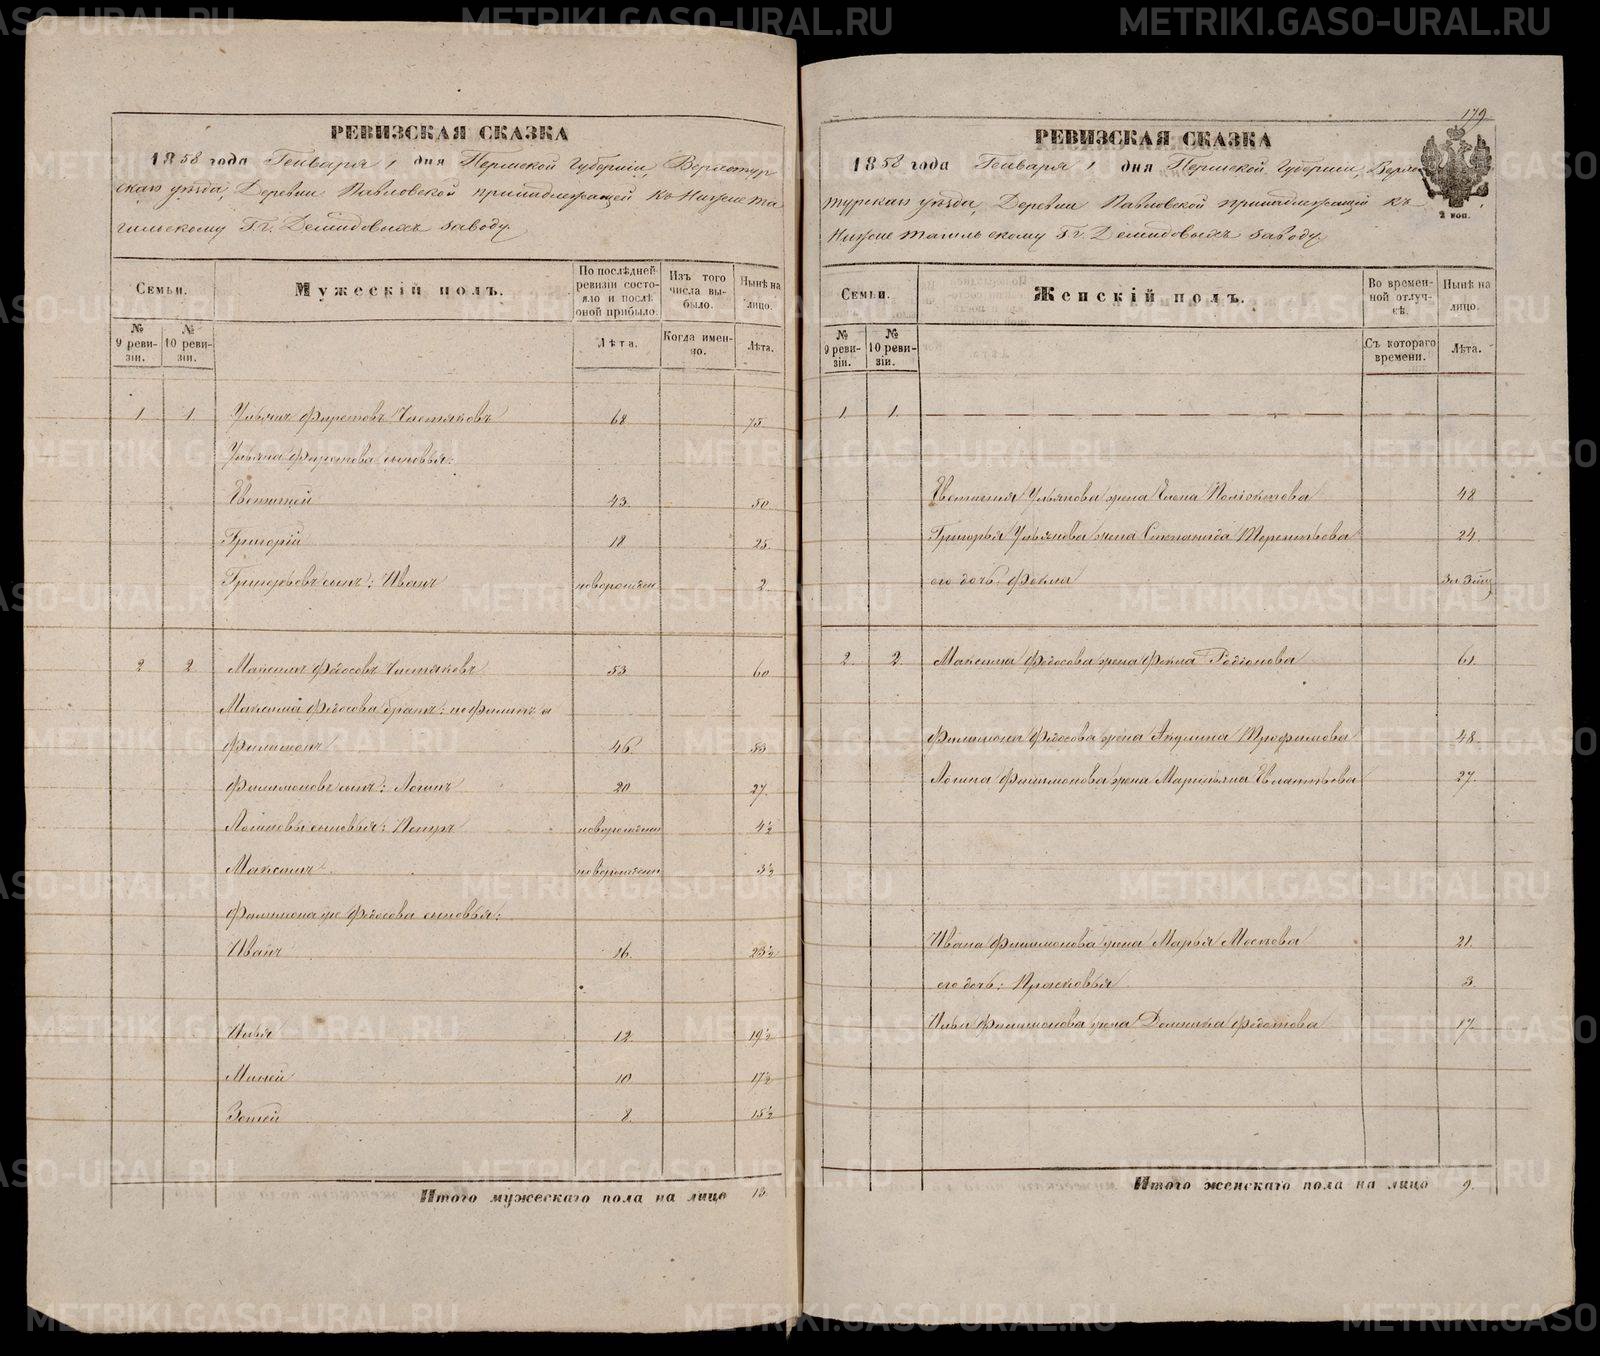 РЕВИЗСКАЯ СКАЗКА
1858 года Генваря 1 дня Пермской Губернии, Верхотур
скаго уѣзда, Деревни Павловской принадлежащей къ Нижне та
гильскому Гг. Демидовыхъ заводу.
Семьи.
Мужескій полъ.
По послѣдней ревизіи состояло и послѣ оной прибыло.
Изъ того числа выбыло.
Нынѣ на лицо.
№ 9 ревизіи.
№ 10 ревизіи.
Лѣта.
Когда именно.
Лѣта.
1 1 Ульянъ Фирсовъ Чистяковъ 68 75
Ульяна Фирсова сыновья:
Евстигней 43. 50
Григорій 18 25.
Григорьевъ сынъ: Иванъ новорожден 2
2 2. Максимъ Федосовъ Чистяковъ 53 60
Максима Федосова братъ:
Филимонъ 46. 53
Филимоновъ сынъ: Логинъ 20 27.
Логиновы сыновья: Петръ новорожден 4½
Максимъ новорожден 3½
Филимона же Федосова сыновья:
Иванъ 16. 23½
Илья 12. 19½
Михей 10 17½
Зотей 8. 15½
Итого мужескаго пола на лицо 13.
179
РЕВИЗСКАЯ СКАЗКА
1858 года Генваря 1 дня Пермской Губерніи, Верхо
турскаго уѣзда, Деревни Павловской принадлежащей къ
Нижне тагильскому Гг. Демидовыхъ заводу.
2 коп.
Семьи.
Женскій полъ.
Во временной отлучкѣ.
Нынѣ на лицо.
№ 9 ревизіи.
№ 10 ревизіи.
Съ котораго времени.
Лѣта.
1 1.
Евстигнея Ульянова жена Елена Поліектова 48
Григорья Ульянова жена Степанида Терентьева 24.
его дочь: Фекла
2. 2. Максима Федосова жена Фекла Родіонова 61.
Филимона Федосова жена Акулина Трофимова 48.
Логина Филимонова жена Маремьяна Евлатьева 27.
Ивана Филимонова жена Марья 21.
его дочь: Прасковья 3.
Ильи Филимонова жена Домника Федотова 17.
Итого женскаго пола на лицо 9.
METRIKI.GASO-URAL.RU